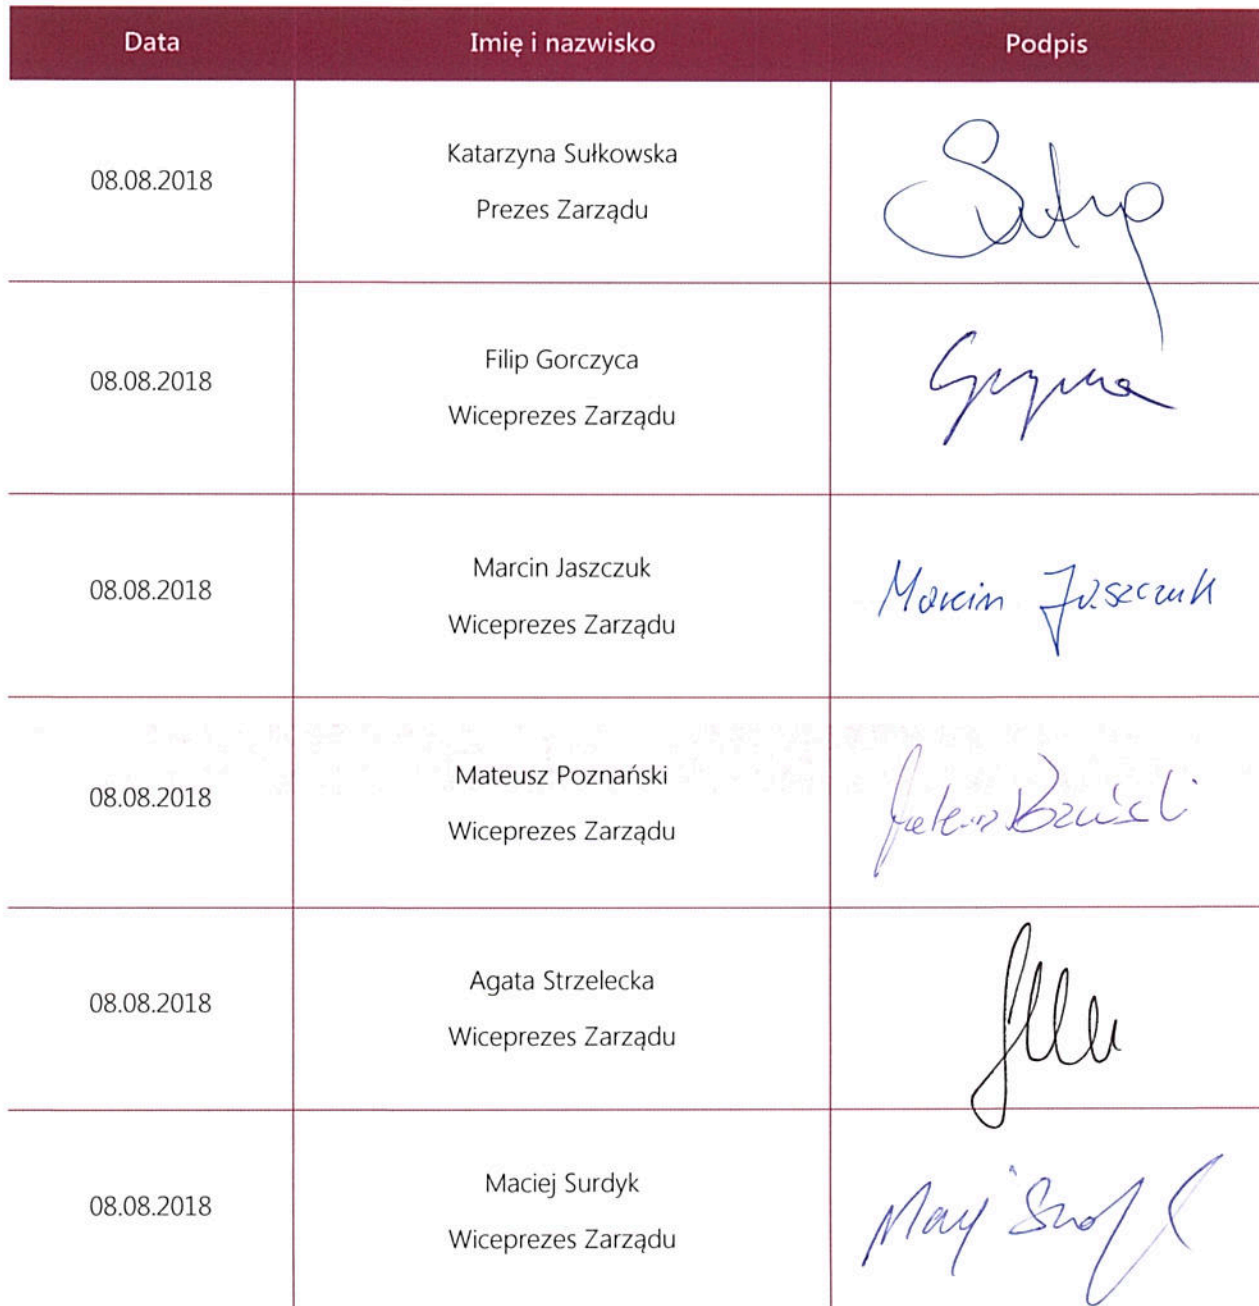 Data Imię i nazwisko Podpis
08.08.2018
Katarzyna Sułkowska
Prezes Zarządu
08.08.2018
Filip Gorczyca
Wiceprezes Zarządu
08.08.2018
Marcin Jaszczuk
Wiceprezes Zarządu
Marcin Jaszczuk
08.08.2018
Mateusz Poznański
Wiceprezes Zarządu
08.08.2018
Agata Strzelecka
Wiceprezes Zarządu
08.08.2018
Maciej Surdyk
Wiceprezes Zarządu